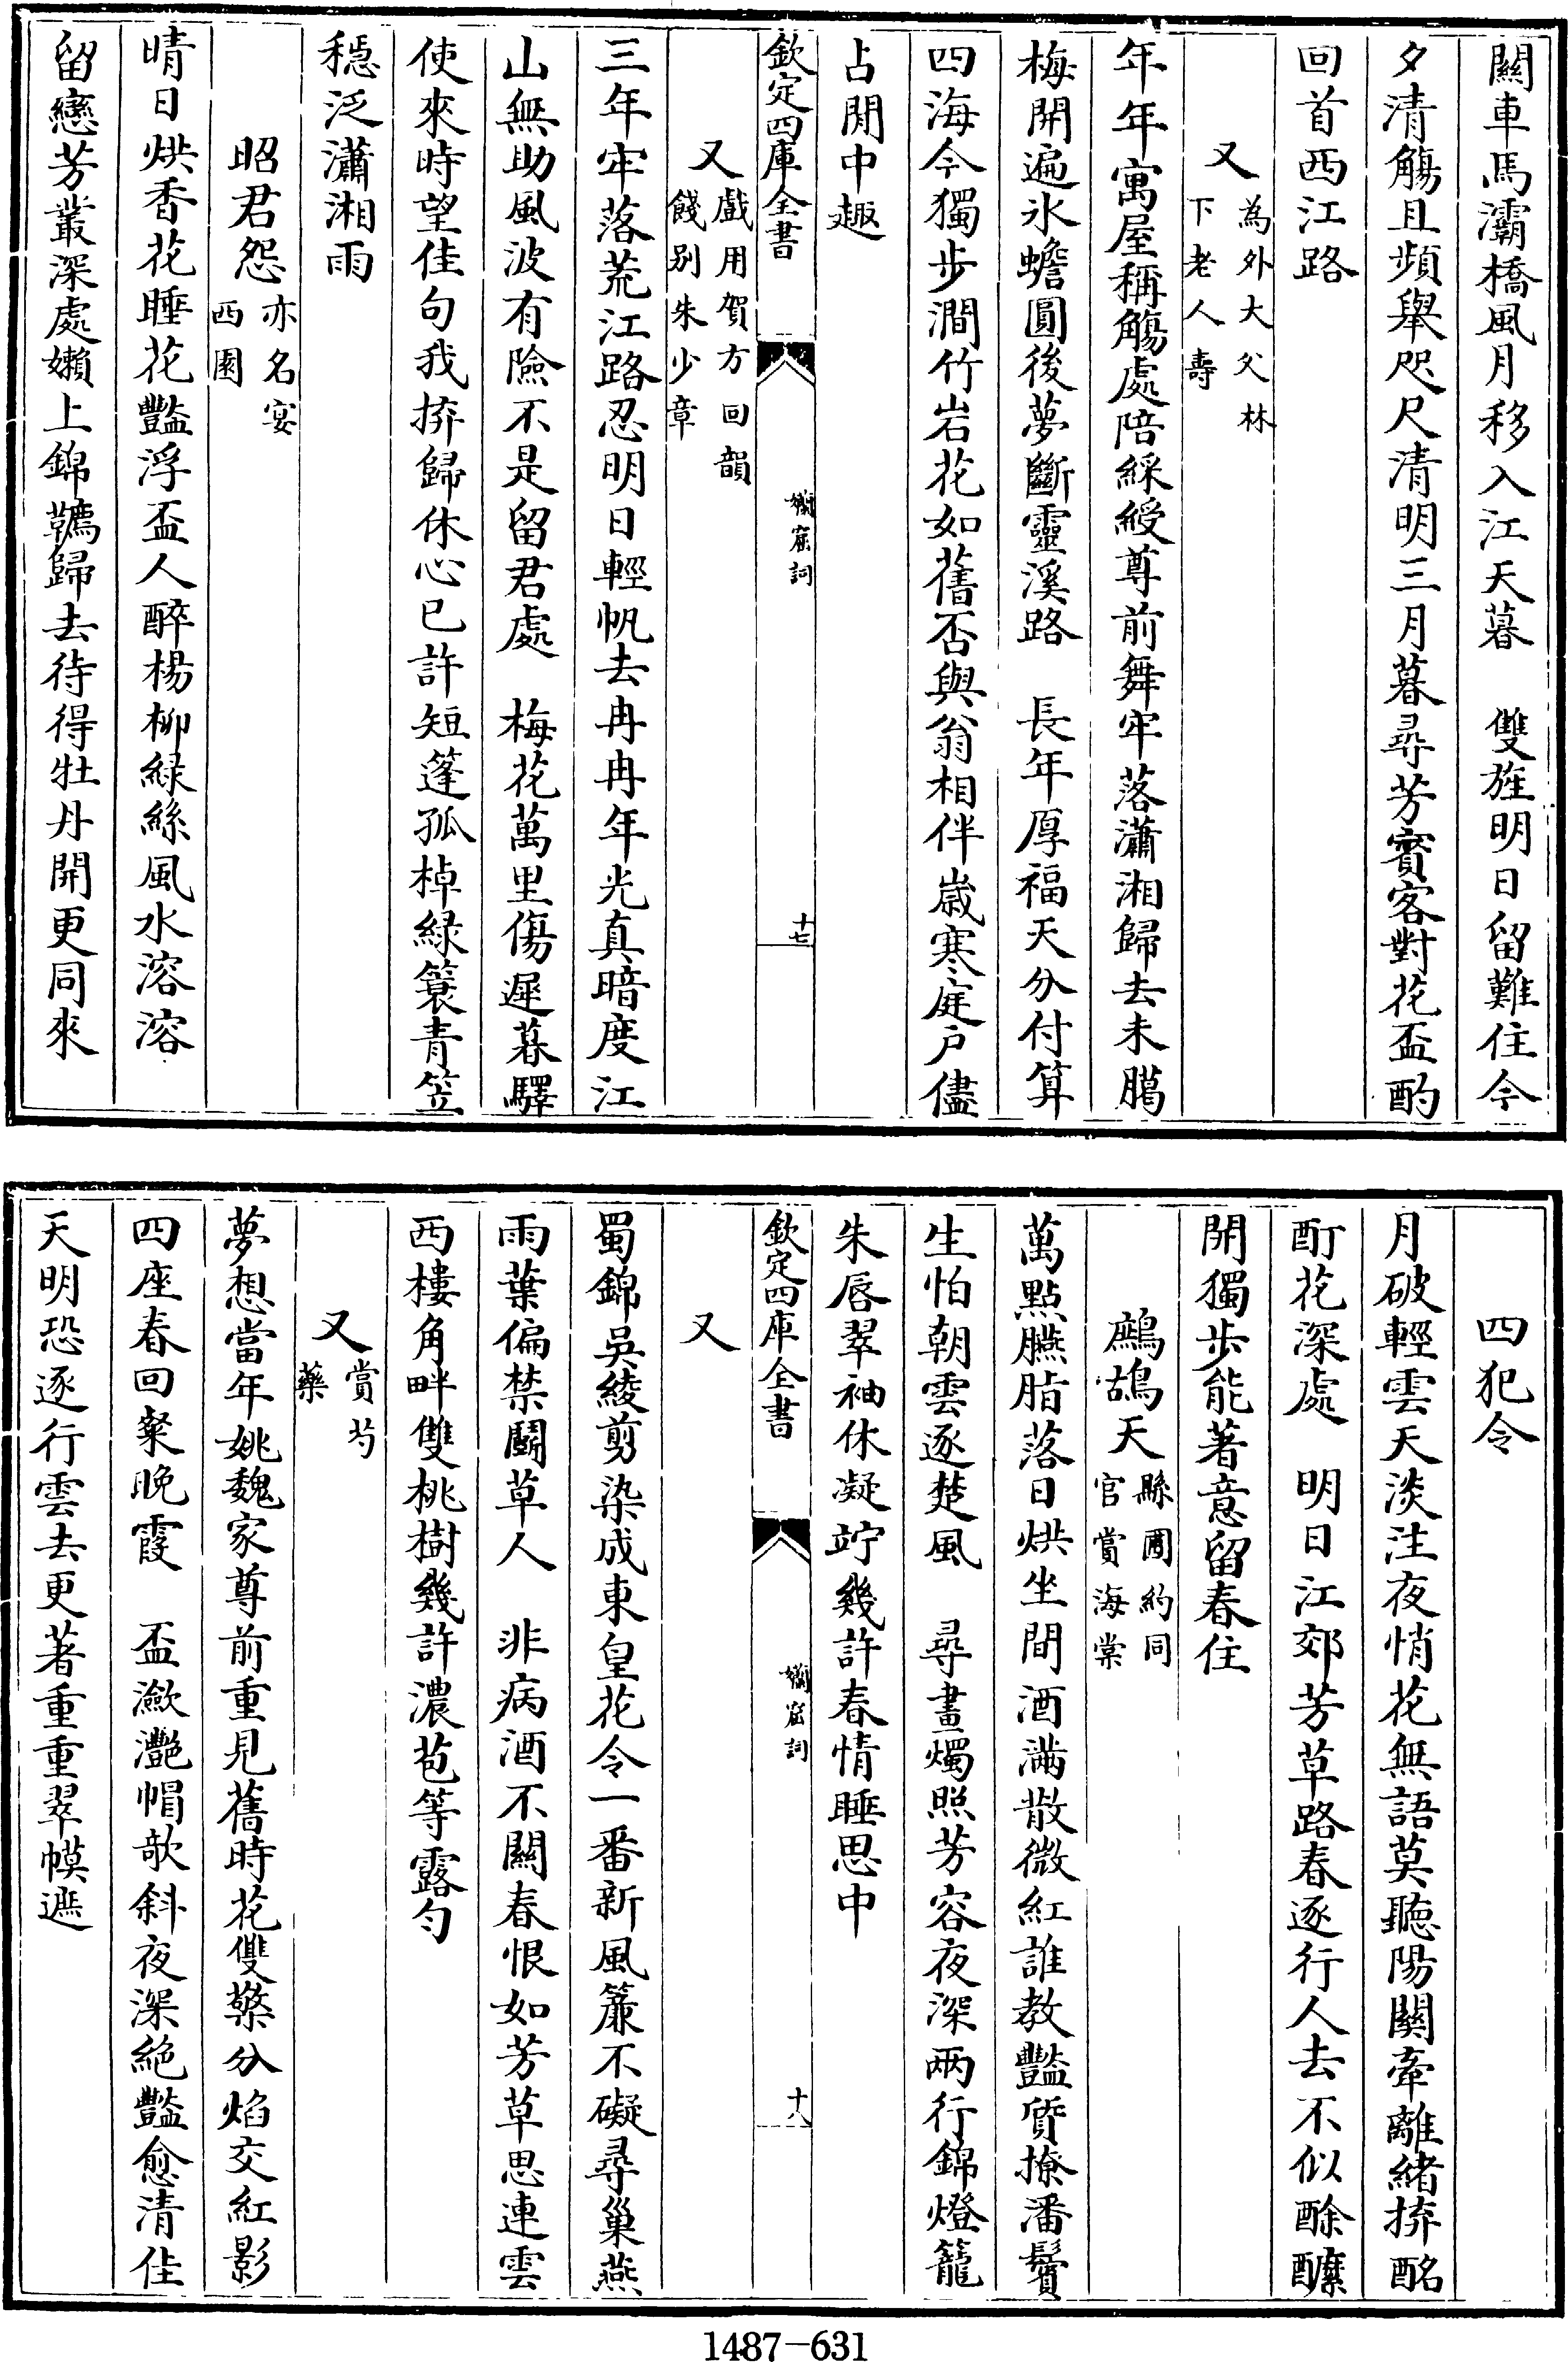 關車馬灞橋風月移入江天暮　雙旌明日留難住今
夕清觴且頻舉咫尺清明三月暮尋芳賓客對花盃酌
回首西江路
又為外大父林
下老人壽
年年寓屋稱觴處陪綵綬尊前舞牢落瀟湘歸去未臈
梅開遍氷蟾圓後夢斷靈溪路　長年厚福天分付算
四海今獨步澗竹岩花如舊否與翁相伴歲寒庭戸儘
占閒中趣
欽定四庫全書
嬾窟詞
十七
又戲用賀方回韻
餞别朱少章
三年牢落荒江路忍明日輕帆去冉冉年光真暗度江
山無助風波有險不是留君處　梅花萬里傷遲暮驛
使來時望佳句我拚歸休心已許短篷孤棹緑簑青笠
穏泛瀟湘雨
昭君怨亦名宴
西園
晴日烘香花睡花豔浮盃人醉楊柳緑絲風水溶溶
留戀芳叢深處嬾上錦韉歸去待得牡丹開更同來
四犯令
月破輕雲天淡注夜悄花無語莫聽陽關牽離緒拚酩
酊花深處　明日江郊芳草路春逐行人去不似酴醿
開獨步能著意留春住
鷓鴣天縣圃約同
官賞海棠
萬點臙脂落日烘坐間酒滿散微紅誰教豔質撩潘鬢
生怕朝雲逐楚風　尋畫燭照芳容夜深兩行錦燈籠
朱唇翠袖休凝竚幾許春情睡思中
欽定四庫全書
嬾窟詞
十八
又
蜀錦吳綾剪染成東皇花令一番新風簾不礙尋巢燕
雨葉偏禁鬭草人　非病酒不關春恨如芳草思連雲
西樓角畔雙桃樹幾許濃苞等露匀
又賞芍
藥
夢想當年姚魏家尊前重見舊時花雙檠分焰交紅影
四座春回粲晚霞　盃瀲灩帽欹斜夜深絶豔愈清佳
天明恐逐行雲去更著重重翠幙遮
1487-631